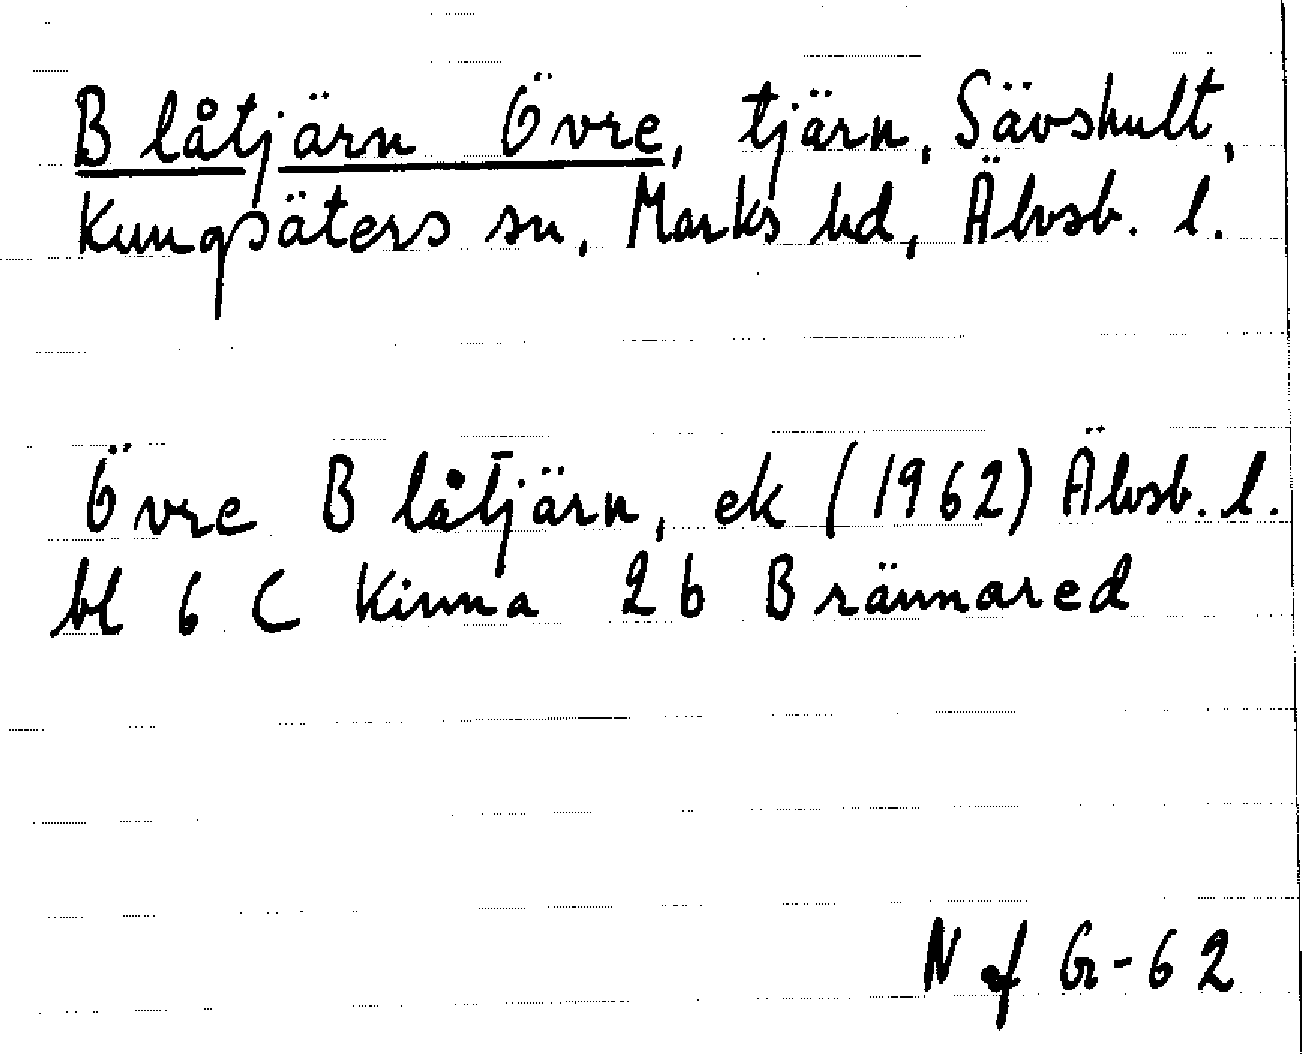 Blåtjärn Övre, tjärn, Sävshult,
Kungsäters sn, Marks hd, Älvsb. l.
Övre Blåtjärn, ek (1962) Älvsb. l.
bl 6 C Kinna 2 b Brännared
N of G-62